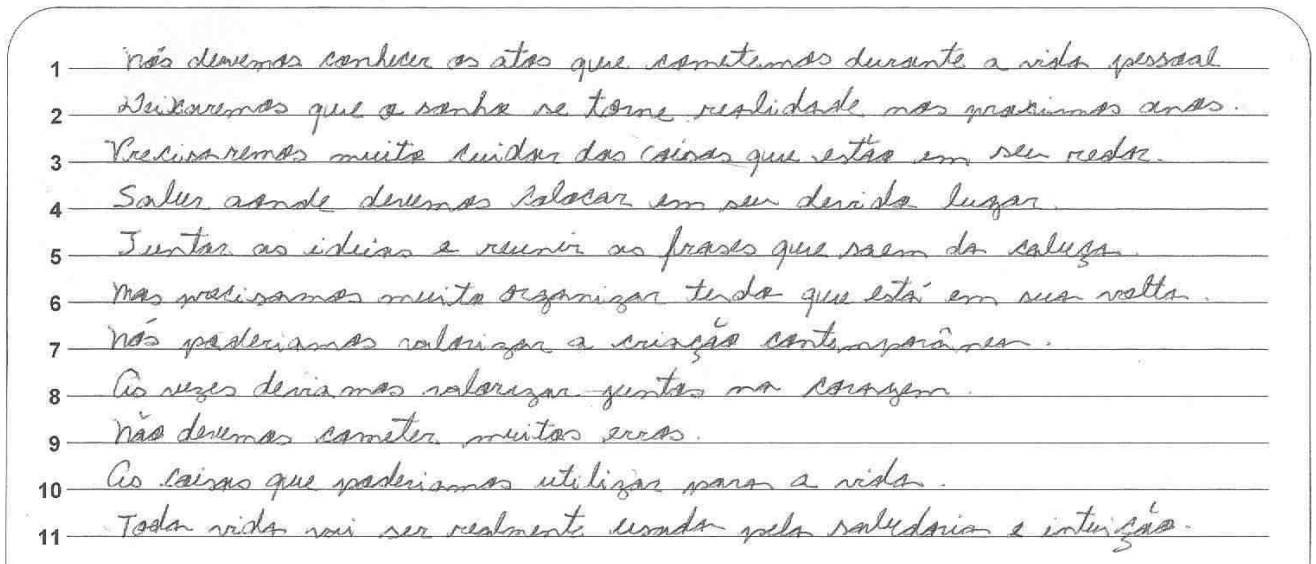 1 nós devemos conhecer os atos que cometemos durante a vida pessoal
2 Deixaremos que o sonho se torne realidade nos proximos anos.
3 Precisaremos muito cuidar das coisas que estão em seu redor.
4 Saber aonde devemos colocar em seu devido lugar.
5 Juntar as ideias e reunir as frases que saem da cabeça.
6 Mas precisamos muito organizar tudo que está em sua volta.
7 Nós poderiamos valorizar a criação contemporânea.
8 Às vezes deviamos valorizar juntos na coragem.
9 Não devemos cometer muitos erros.
10 As coisas que poderiamos utilizar para a vida.
11 Toda vida vai ser realmente usada pela sabedoria e intuição.